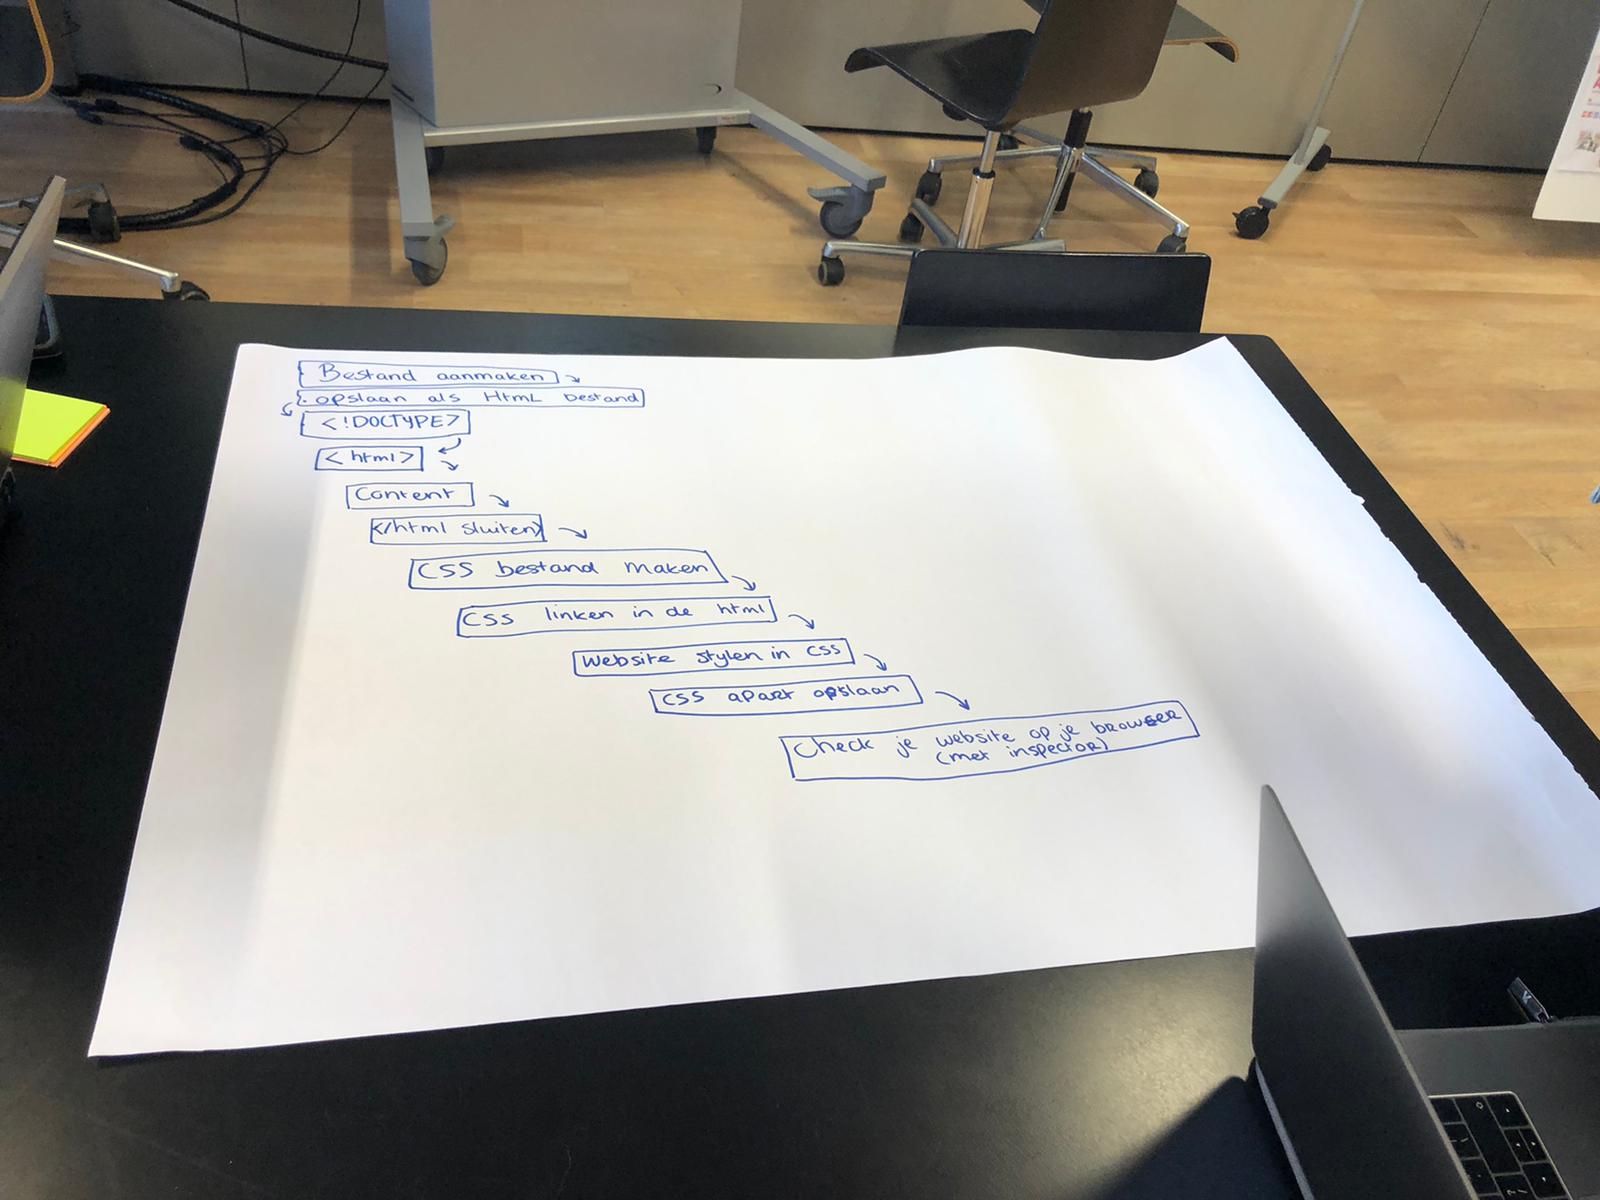 Bestand aanmaken
opslaan als HTML bestand
<!DOCTYPE>
<html>
Content
</html sluiten>
CSS bestand maken
CSS linken in de html
Website stylen in CSS
CSS apart opslaan
Check je website op je browser
(met inspector)